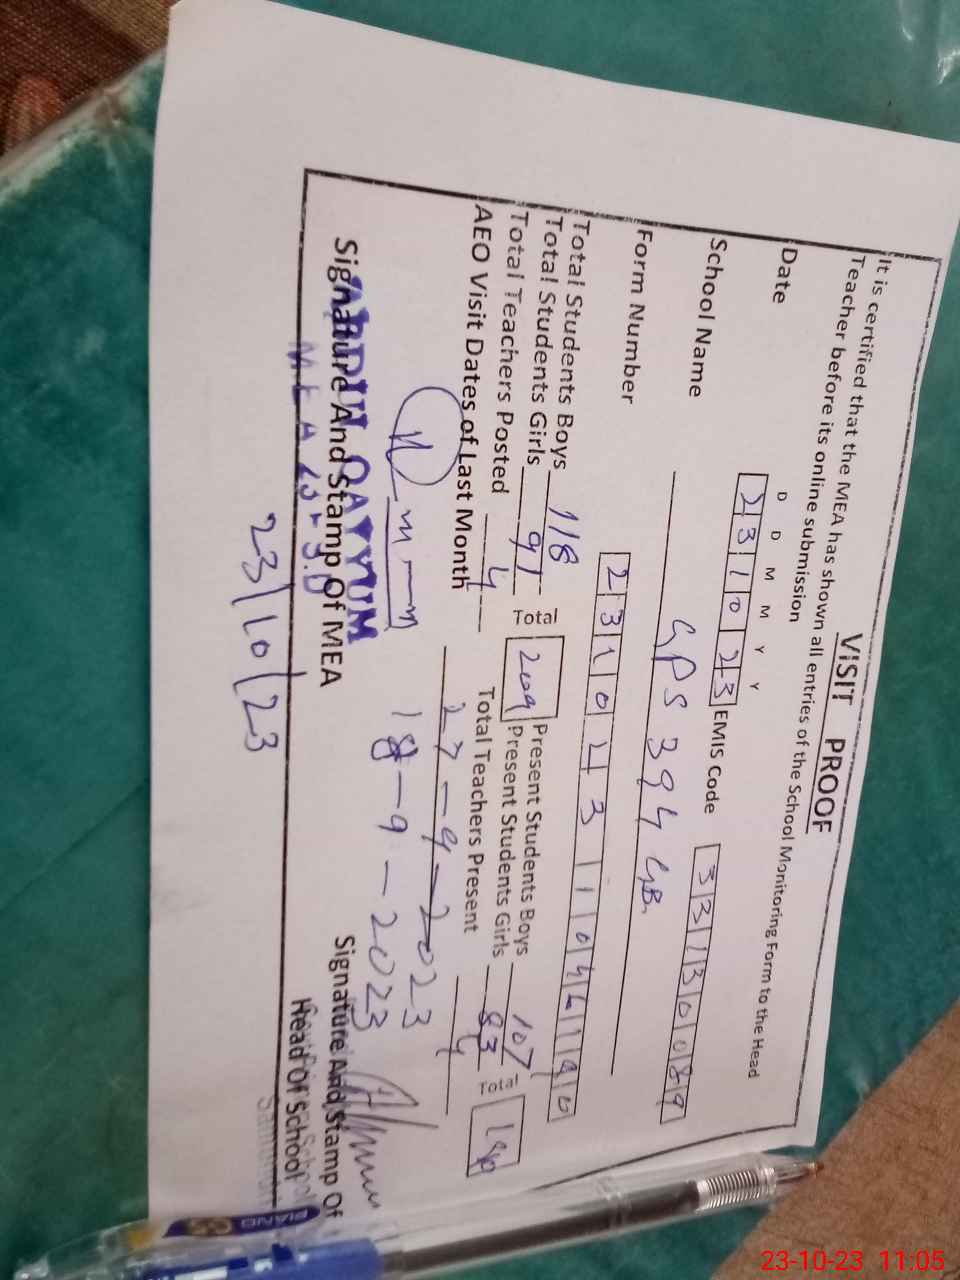 VISIT PROOF
It is certified that the MEA has shown all entries of the School Monitoring Form to the Head
Teacher before its online submission
D D M M Y Y
Date 231023 EMIS Code 33130089
School Name GPS 394 GB.
Form Number
Total Students Boys 118 Total 209 Present Students Boys 107 Total
Total Students Girls 91 Present Students Girls 83
Total Teachers Posted 4 Total Teachers Present 4
AEO Visit Dates of Last Month 27-9-2023
18-9-2023
Signature And Stamp Of MEA
QAYYUM
MEA
Signature And Stamp Of
Head Of School
23/10/23
23-10-23 11:05